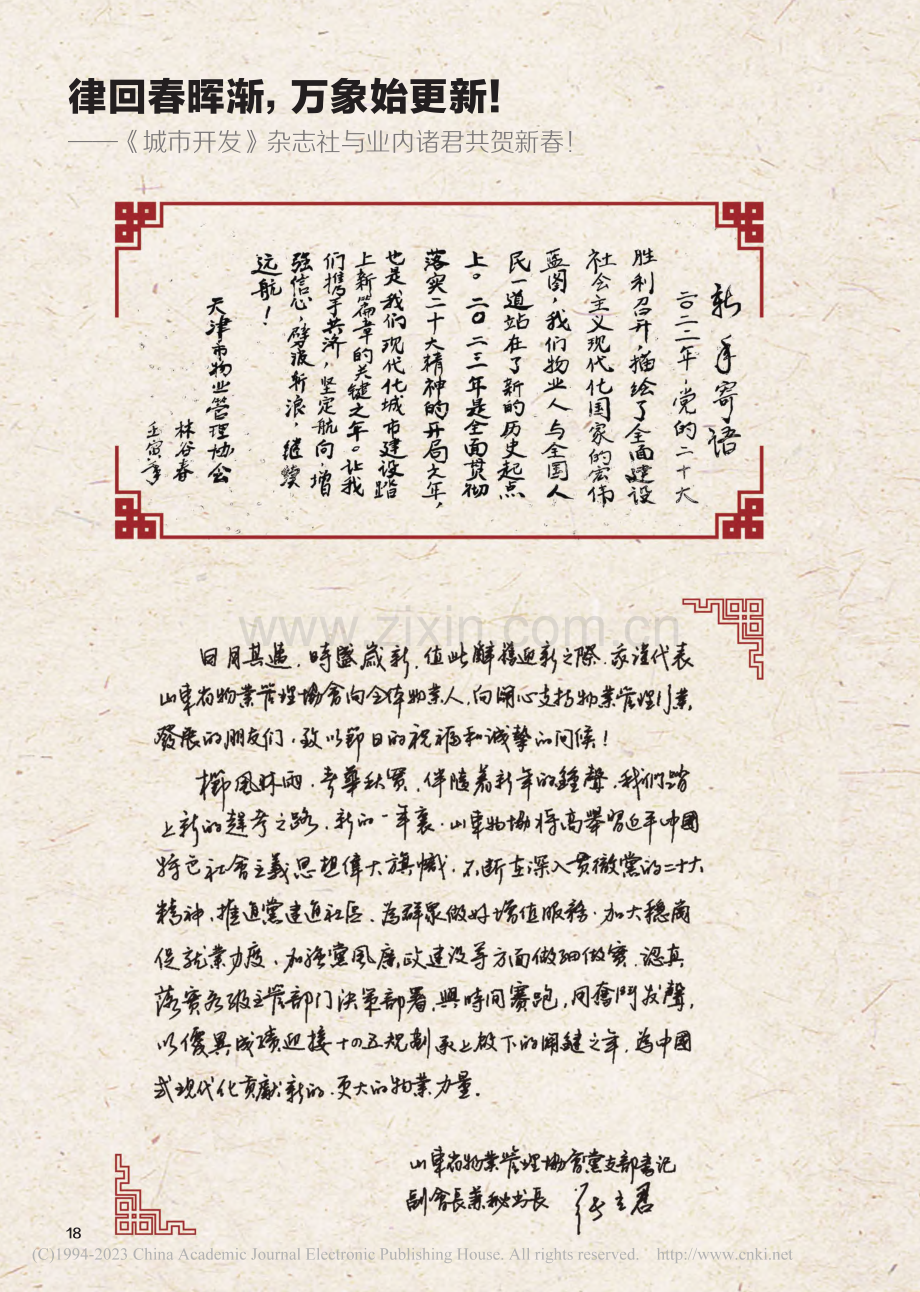 律回春晖渐，万象始更新！
——《城市开发》杂志社与业内诸君共贺新春！
新年寄语
二〇二二年，党的二十大
胜利召开，描绘了全面建设
社会主义现代化国家的宏伟
蓝图，我们物业人与全国人
民一道站在了新的历史起点
上。二〇二三年是全面贯彻
落实二十大精神的开局之年，
也是我们现代化城市建设踏
上新篇章的关键之年。让我
们携手共济，坚定航向，增
强信心，劈波斩浪，继续
远航！
天津市物业管理协会
林谷春
壬寅年
www.zixin.com.cn
日月其迈，時盛歲新，值此辭舊迎新之際，我謹代表
山東省物業管理協會向全体物業人，向関心支持物業管理行業
發展的朋友们，致以節日的祝福和誠摯的问候！
櫛風沐雨，春華秋實，伴隨着新年的鐘聲，我们踏
上新的趕考之路，新的一年裏，山東物協将高舉習近平中國
特色社會主義思想偉大旗幟，不断在深入贯徹黨的二十大
精神、推進黨建進社區、為群眾做好增值服務、加大穩崗
促就業力度、加強黨風廉政建设等方面做細做實，認真
落實各級主管部门决策部署，與時间賽跑，同奮鬥發聲，
以優異成績迎接十四五規劃承上啟下的関鍵之年，為中國
式現代化貢獻新的、更大的物業力量。
山東省物業管理協會黨支部書记
副會長兼秘书長
18
(C)1994-2023 China Academic Journal Electronic Publishing House. All rights reserved. http://www.cnki.net